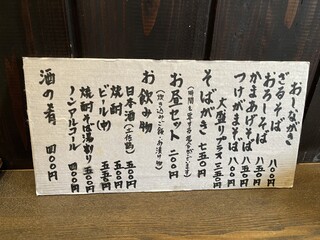 おしながき
ざるそば 八〇〇円
おろしそば 八五〇円
かまあげそば 八五〇円
つけがまそば 八〇〇円
大盛りプラス 三五〇円
そばがき 七五〇円
(時間を要する場合がございます)
お昼セット 二〇〇円
(炊き込みご飯・お漬け物)
お飲み物
日本酒(土佐鶴) 五〇〇円
焼酎 五〇〇円
ビール(中) 五五〇円
焼酎そば湯割り 五五〇円
ノンアルコール 四〇〇円
酒の肴 四〇〇円